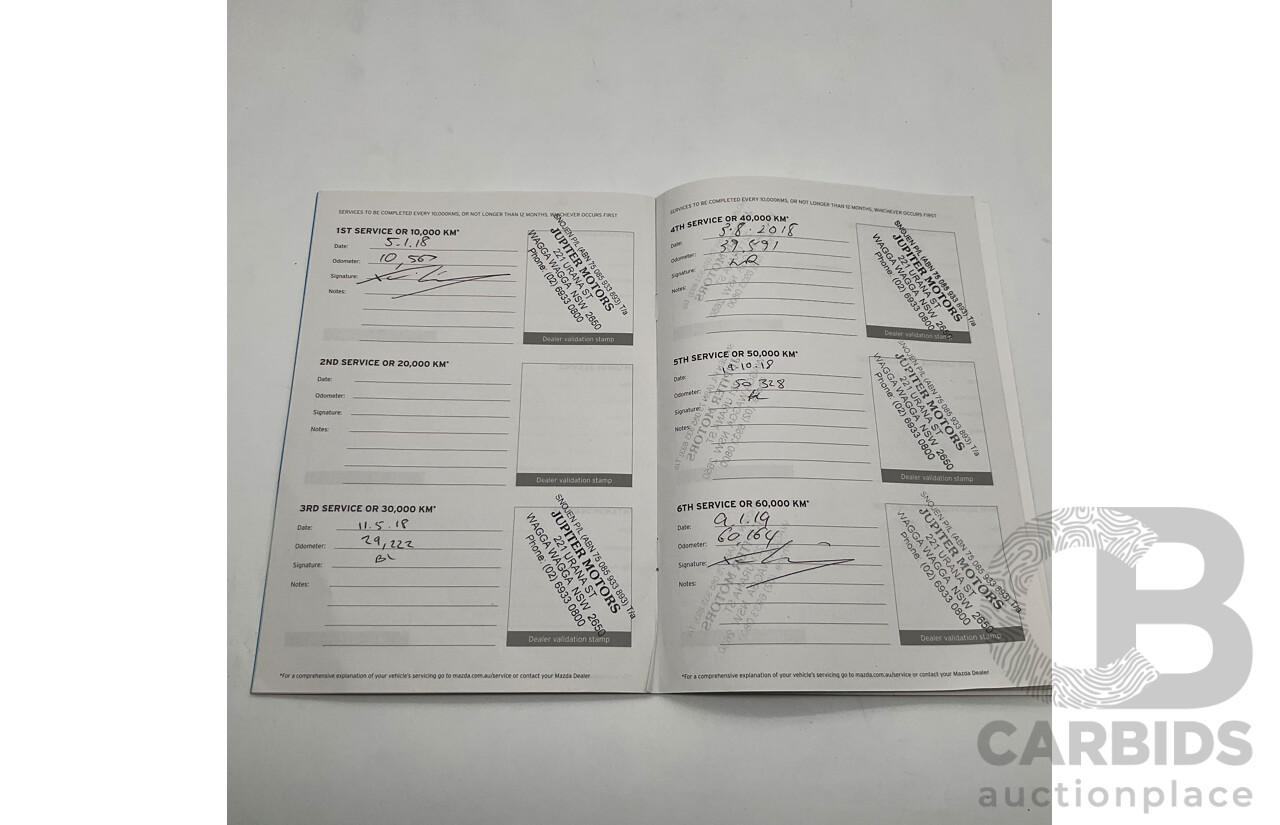 SERVICES TO BE COMPLETED EVERY 10,000KMS, OR NOT LONGER THAN 12 MONTHS, WHICHEVER OCCURS FIRST
1ST SERVICE OR 10,000 KM*
Date: 5.1.18
Odometer: 10,567
Signature:
Notes:
SNOJEN P/L (ABN 75 085 933 893) T/a
JUPITER MOTORS
221 URANA ST
WAGGA WAGGA NSW 2650
Phone: (02) 6933 0800
Dealer validation stamp
2ND SERVICE OR 20,000 KM*
Date:
Odometer:
Signature:
Notes:
Dealer validation stamp
3RD SERVICE OR 30,000 KM*
Date: 11.5.18
Odometer: 29,222
Signature:
Notes:
SNOJEN P/L (ABN 75 085 933 893) T/a
JUPITER MOTORS
221 URANA ST
WAGGA WAGGA NSW 2650
Phone: (02) 6933 0800
Dealer validation stamp
*For a comprehensive explanation of your vehicle's servicing go to mazda.com.au/service or contact your Mazda Dealer
SERVICES TO BE COMPLETED EVERY 10,000KMS, OR NOT LONGER THAN 12 MONTHS, WHICHEVER OCCURS FIRST
4TH SERVICE OR 40,000 KM*
Date: 3.8.2018
Odometer: 39,591
Signature:
Notes:
SNOJEN P/L (ABN 75 085 933 893) T/a
JUPITER MOTORS
221 URANA ST
WAGGA WAGGA NSW 2650
Phone: (02) 6933 0800
Dealer validation stamp
5TH SERVICE OR 50,000 KM*
Date:
Odometer: 50 328
Signature:
Notes:
SNOJEN P/L (ABN 75 085 933 893) T/a
JUPITER MOTORS
221 URANA ST
WAGGA WAGGA NSW 2650
Phone: (02) 6933 0800
Dealer validation stamp
6TH SERVICE OR 60,000 KM*
Date: 9.1.19
Odometer: 60,164
Signature:
Notes:
SNOJEN P/L (ABN 75 085 933 893) T/a
JUPITER MOTORS
221 URANA ST
WAGGA WAGGA NSW 2650
Phone: (02) 6933 0800
Dealer validation stamp
*For a comprehensive explanation of your vehicle's servicing go to mazda.com.au/service or contact your Mazda Dealer
CB
CARBIDS
auctionplace